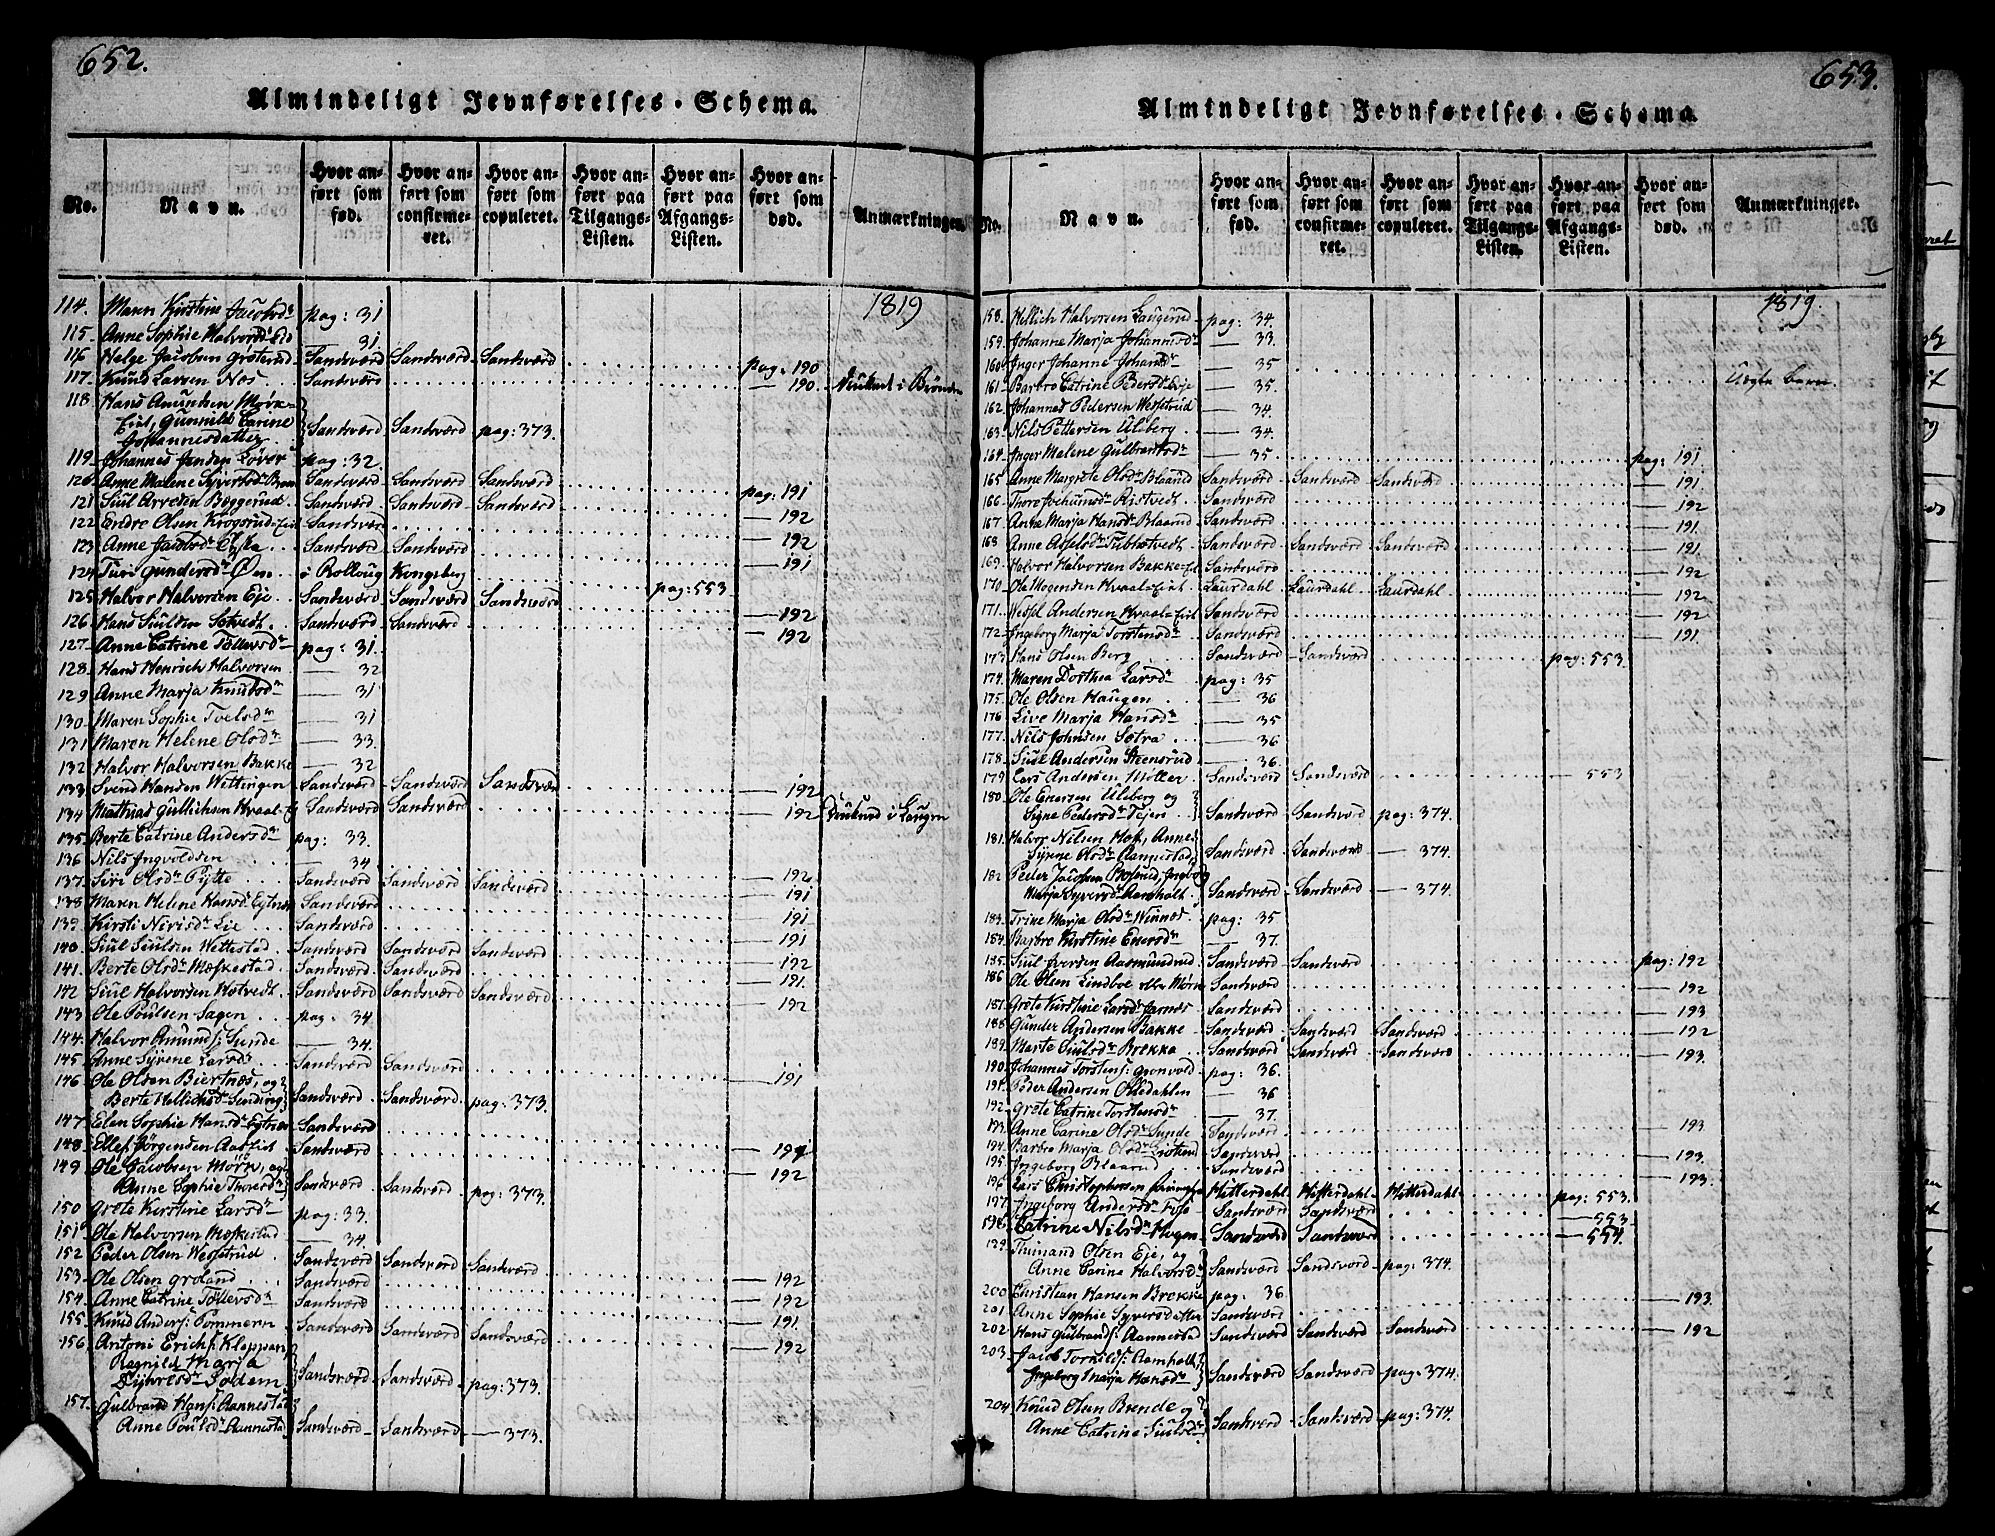 652.
Almindeligt Jevnførelses-Schema.
No.
Navn.
Hvor anført som fød.
Hvor anført som confirmeret.
Hvor anført som copuleret.
Hvor anført paa Tilgangs-Listen.
Hvor anført paa Afgangs-Listen.
Hvor anført som død.
Anmærkninger.
1819
114. Maren Kirstine Jacobsdr pag: 31
115. Anne Sophie Halvorsdr Eid — 31.
116 Helge Jacobsen Sandsværd Sandsværd Sandsværd pag. 190
117. Knud Larsen Næs Sandsværd — 190. Druknet i Brønden
118 Hans Amundsen Mørk
Eiet, Gunnild Carine
Johannesdatter Sandsværd Sandsværd pag: 373.
119. Johannes Jensen Løver pag: 32.
120 Anne Malene Syversdr Sandsværd Sandsværd Sandsværd pag: 191
121 Siul Arvesen Beggerud Sandsværd Sandsværd Sandsværd — 192
122 Endre Olsen Krogsrud-Eiet Sandsværd — 192
123 Anne Jacobsdr Sandsværd Sandsværd — 191
124 Turi Gundersdr Øen i Rolloug Kongsberg pag: 553
125 Halvor Halvorsen Eje Sandsværd Sandsværd Sandsværd — 192
126 Hans Siulsen Sandsværd Sandsværd — 192
127 Anne Catrine Tollevsdr pag: 31.
128 Hans Henrich Halvorsen — 32
129 Anne Marja Knutsdr — 31
130 Maren Sophie — 31
131 Maren Helene Olsdr — 33.
132 Halvor Halvorsen Bakke — 32
133 Svend Hansen Wettingen Sandsværd Sandsværd Sandsværd — 192
134 Mathias Gullichsen Hvaal-E Sandsværd Sandsværd — 192 Druknet i Laugen
135 Berte Catrine Andersdr pag: 33.
136 Nils Ingvoldsen — 34
137 Siri Olsdr Pytte Sandsværd Sandsværd Sandsværd — 192
138 Maren Helene Hansdr Sandsværd — 191
139 Kirsti Lie Sandsværd — 191
140 Siul Siulsen Wettestad Sandsværd Sandsværd Sandsværd — 191
141 Berte Olsdr Sandsværd Sandsværd — 192
142 Siul Halvorsen Sandsværd Sandsværd Sandsværd — 191
143 Ole Poulsen Sagen pag. 34 — 192
144 Halvor Amunds: Sunde — 34.
145 Anne Syrene Larsdr Sandsværd Sandsværd — 191
146 Ole Olsen Biertnæs, og
Berte Hellichsdr Sandsværd Sandsværd pag: 373.
147 Elen Sophie Hansdr Sandsværd
148 Ellef Jørgensen Sandsværd — 191
149 Ole Jacobsen Mørk, og
Anne Sophie Thoresdr Sandsværd Sandsværd pag: 373. — 192
150 Grete Kirstine Larsdr pag: 33.
151 Ole Halvorsen — 34.
152 Peder Olsen Sandsværd Sandsværd Sandsværd — 192
153 Ole Olsen Groland Sandsværd — 192
154 Anne Catrine Tollevsdr Sandsværd — 191
155 Knud Anders: Pommern Sandsværd Sandsværd Sandsværd — 192
156 Antoni Erichs: Kleppan
Ragnild Marja
Sodem Sandsværd Sandsværd pag: 373.
157. Gulbrand Hans: Aannestad
Anne Poulsdr Aannestad Sandsværd Sandsværd — 373.
653.
Almindeligt Jevnførelses-Schema.
No.
Navn.
Hvor anført som fød.
Hvor anført som confirmeret.
Hvor anført som copuleret.
Hvor anført paa Tilgangs-Listen.
Hvor anført paa Afgangs-Listen.
Hvor anført som død.
Anmærkninger.
1819.
158. Hellich Halvorsen Laugerud pag: 34.
159. Johanne Marja Johannisdr — 33.
160 Inger Johanne — 35
161 Barbro Catrine Pedersdr Eje — 35. Uægte barn.
162 Johannes Pedersen — 34.
163 Nils Pettersen Ulsberg — 34.
164 Inger Malene Gulbrandsdr — 35 pag: 191
165 Anne Margrete Olsdr Blaarud Sandsværd Sandsværd Sandsværd — 191.
166 Thore Sandsværd — 192
167 Anne Marja Hansdr Blaarud Sandsværd — 191.
168 Anne Sandsværd Sandsværd Sandsværd — 191.
169 Halvor Halvorsen Bakke-Eiet Sandsværd — 192
170 Ole Mogensen Hvaale-Eiet Laurdahl Laurdahl Laurdahl — 192
171 Andersen Hvaal-Eiet Sandsværd — 192
172 Ingeborg Marja Torstensdr Sandsværd — 191.
173 Hans Olsen Berg Sandsværd Sandsværd pag: 553.
174 Maren Dorthea Larsdr pag: 35
175 Ole Olsen Haugen — 36
176 Live Marja Hansdr — 35
177 Nils Johnsen Sætra — 36
178 Siul Andersen Steensrud — 36.
179 Lars Andersen Møller Sandsværd Sandsværd — 553
180 Ole Enersen Ulsberg og
Signe Pedersdr Sandsværd Sandsværd pag: 374.
181 Halvor Nilsen Hof, Anne
Syrene Olsdr Aannestad Sandsværd Sandsværd — 374.
182 Peder Jacobsen Ingeborg
Marja Syversdr Aamholt Sandsværd Sandsværd — 374.
183 Trine Marja Olsdr Winnæs pag: 35
184 Barbro Kirstine Enersdr — 37.
185 Siul Iversen Aasmundrud Sandsværd Sandsværd pag: 192
186 Ole Olsen Lindboe eller Mørk Sandsværd — 192
187 Grete Kirstine Larsdr Sandsværd — 193
188 Gunder Andersen Bakke Sandsværd Sandsværd Sandsværd — 192
189 Marte Siulsdr Brekke Sandsværd Sandsværd Sandsværd — 193.
190 Johannes Torstens: Grønvold pag: 36.
191 Peder Andersen Olledahlen — 36
192 Grete Catrine Torstensdr — 37.
193 Anne Carine Olsdr Sunde Sandsværd — 193
194 Barbro Marja Olsdr Sandsværd — 193.
195 Ingeborg Blaarud Sandsværd — 193.
196 Lars Christophersen Hitterdahl Hitterdahl Hitterdahl pag: 553.
197 Ingeborg Andersdr Sandsværd Sandsværd — 553
198 Catrine Nilsdr Sandsværd Sandsværd — 554.
199 Olsen Eje, og
Anne Carine Halvorsdr Sandsværd Sandsværd pag: 374.
200 Christian Hansen Brekke pag: 36. — 193.
201 Anne Sophie Syversdatter Sandsværd
202 Hans Gulbrands: Aannestad Sandsværd Sandsværd Sandsværd — 192
203 Jacob Torkilds: Aamholt
Ingeborg Marja Hansdr Sandsværd Sandsværd pag: 374.
204 Knud Olsen Brende og
Anne Catrine Siulsdr Sandsværd Sandsværd pag: 374.